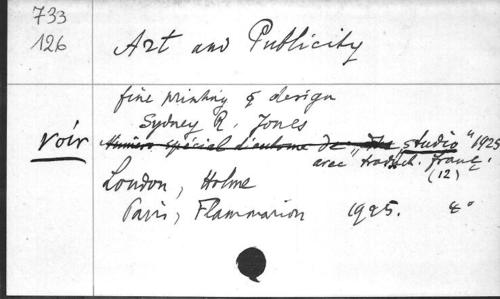 733
126
Art and Publicity
fine printing & design
Sydney R. Jones
voir Numéro spécial d'automne de "The studio" 1925
avec traduct. franç.
(12)
London, Holme
Paris, Flammarion 1925. 4°